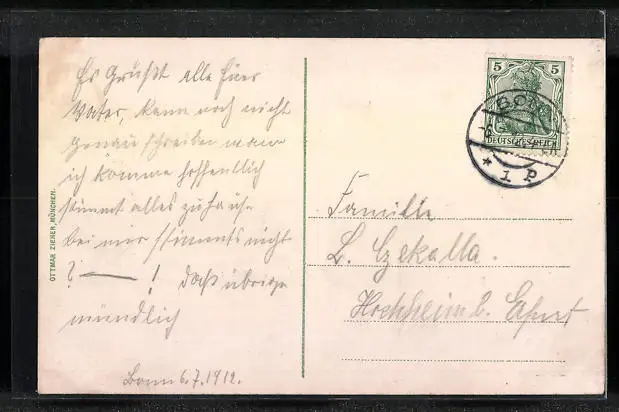 Es Grüßt alle Euer
Vater, kann noch nicht
genau schreiben wann
ich komme hoffentlich
stimmt alles zuhause
bei mir stimmts nicht
? — ! Das übrige
mündlich
Bonn 6.7.1912.
OTTMAR ZIEHER, MÜNCHEN.
5 5
DEUTSCHES REICH
BONN
* 1 P
Familie
L. Czekalla.
Hochheim b. Erfurt